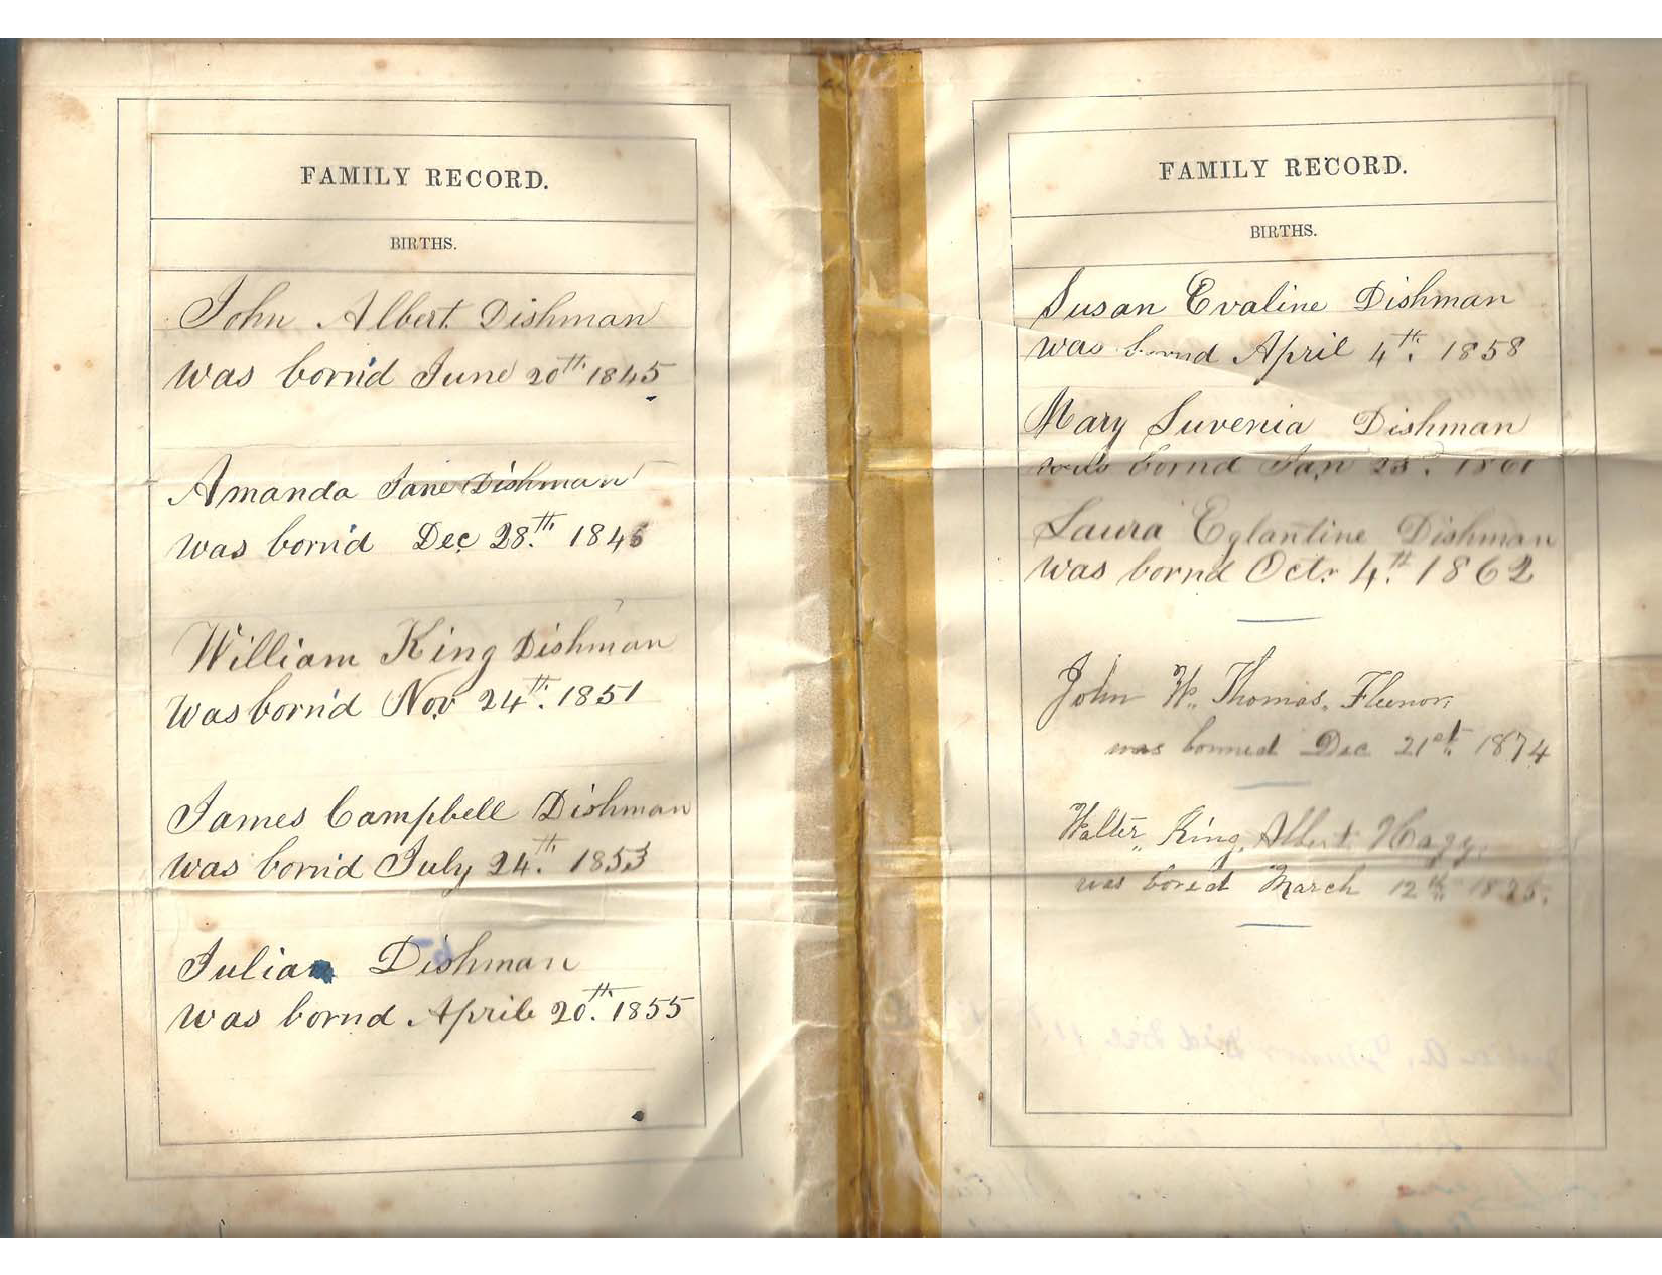 FAMILY RECORD.
BIRTHS.
John Albert Dishman
was born'd June 20th 1845
Amanda Jane Dishman
was born'd Dec 28th. 184
William King Dishman
Was born'd Nov 24th. 1851
James Campbell Dishman
was born'd July 24th. 1853
Julia Dishman
was bornd April 20th. 1855
FAMILY RECORD.
BIRTHS.
Susan Evaline Dishman
was bornd April 4th. 1858
Mary Suvenia Dishman
was bornd Jan 23. 1861
Laura Eglantine Dishman
was bornd Octr 4th. 1862
John W. Thomas. Fleenor.
was bornned Dec 21st. 1874
Walter. King. Albert Hagy.
was bored March 12th